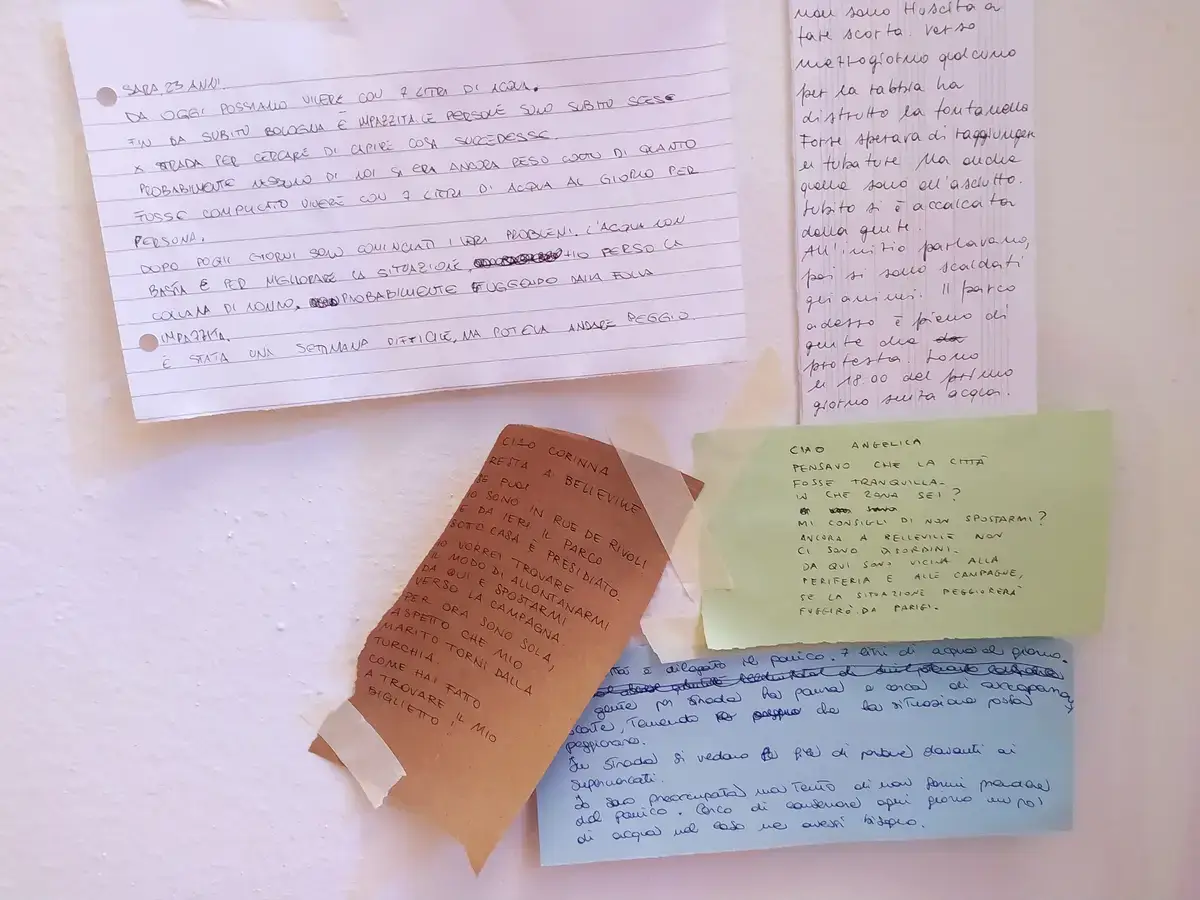 SARA, 23 ANNI.
DA OGGI POSSIAMO VIVERE CON 7 LITRI DI ACQUA.
FIN DA SUBITO BOLOGNA È IMPAZZITA. LE PERSONE SONO SUBITO SCESE
X STRADA PER CERCARE DI CAPIRE COSA SUCCEDESSE.
PROBABILMENTE NESSUNO DI NOI SI ERA ANCORA RESO CONTO DI QUANTO
FOSSE COMPLICATO VIVERE CON 7 LITRI DI ACQUA AL GIORNO PER
PERSONA.
DOPO POCHI GIORNI SONO COMINCIATI I VERI PROBLEMI. L'ACQUA NON
BASTA E PER MIGLIORARE LA SITUAZIONE, HO PERSO LA
COLLANA DI NONNO, PROBABILMENTE FUGGENDO DALLA FOLLA
IMPAZZITA.
È STATA UNA SETTIMANA DIFFICILE, MA POTEVA ANDARE PEGGIO
non sono riuscita a
fare scorta. Verso
mezzogiorno qualcuno
per la rabbia ha
distrutto la fontanella
Forse sperava di raggiungere
le tubature. Ma anche
quelle sono all'asciutto.
Subito si è accalcata
della gente.
All'inizio parlavano,
poi si sono scaldati
gli animi. Il parco
adesso è pieno di
gente che
protesta. Sono
le 18.00 del primo
giorno senza acqua.
CIAO CORINNA
RESTA A BELLEVILLE
SE PUOI
IO SONO IN RUE DE RIVOLI
E DA IERI IL PARCO
SOTTO CASA È PRESIDIATO.
IO VORREI TROVARE
IL MODO DI ALLONTANARMI
DA QUI E SPOSTARMI
VERSO LA CAMPAGNA.
PER ORA SONO SOLA,
ASPETTO CHE MIO
MARITO TORNI DALLA
TURCHIA.
COME HAI FATTO
A TROVARE IL MIO
BIGLIETTO?
CIAO ANGELICA
PENSAVO CHE LA CITTÀ
FOSSE TRANQUILLA.
IN CHE ZONA SEI?
MI CONSIGLI DI NON SPOSTARMI?
ANCORA A BELLEVILLE NON
CI SONO DISORDINI.
DA QUI SONO VICINA ALLA
PERIFERIA E ALLE CAMPAGNE,
SE LA SITUAZIONE PEGGIORERÀ
FUGGIRÒ DA PARIGI.
è dilagato il panico. 7 litri di acqua al giorno.
gente per strada ha paura e cerca di accaparrarsi
scorte, temendo che la situazione possa
peggiorare.
In strada si vedono file di persone davanti ai
supermercati.
Io sono preoccupata ma tento di non farmi prendere
dal panico. Cerco di conservare ogni giorno un po'
di acqua nel caso ne avessi bisogno.